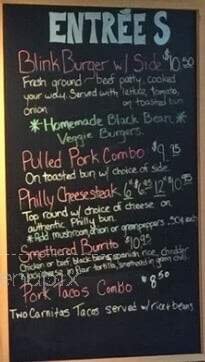 ENTRÉES
Blink Burger w/ Side $10.50
Fresh ground beef patty, cooked
your way. Served with lettuce, tomato,
onion on toasted bun
*Homemade Black Bean *
Veggie Burgers.
Pulled Pork Combo $9.95
On toasted bun w/ choice of side.
Philly Cheesesteak 6" $6.95 12" $10.95
Top round w/ choice of cheese on
authentic Philly bun.
*Add mushroom, onion or green peppers .50¢ each
Smothered Burrito $10.95
Chicken or beef, black beans, spanish rice, cheddar
jack cheese, in flour tortilla, smothered in green chili.
Pork Tacos Combo $8.50
Two Carnitas Tacos served w/ rice + beans